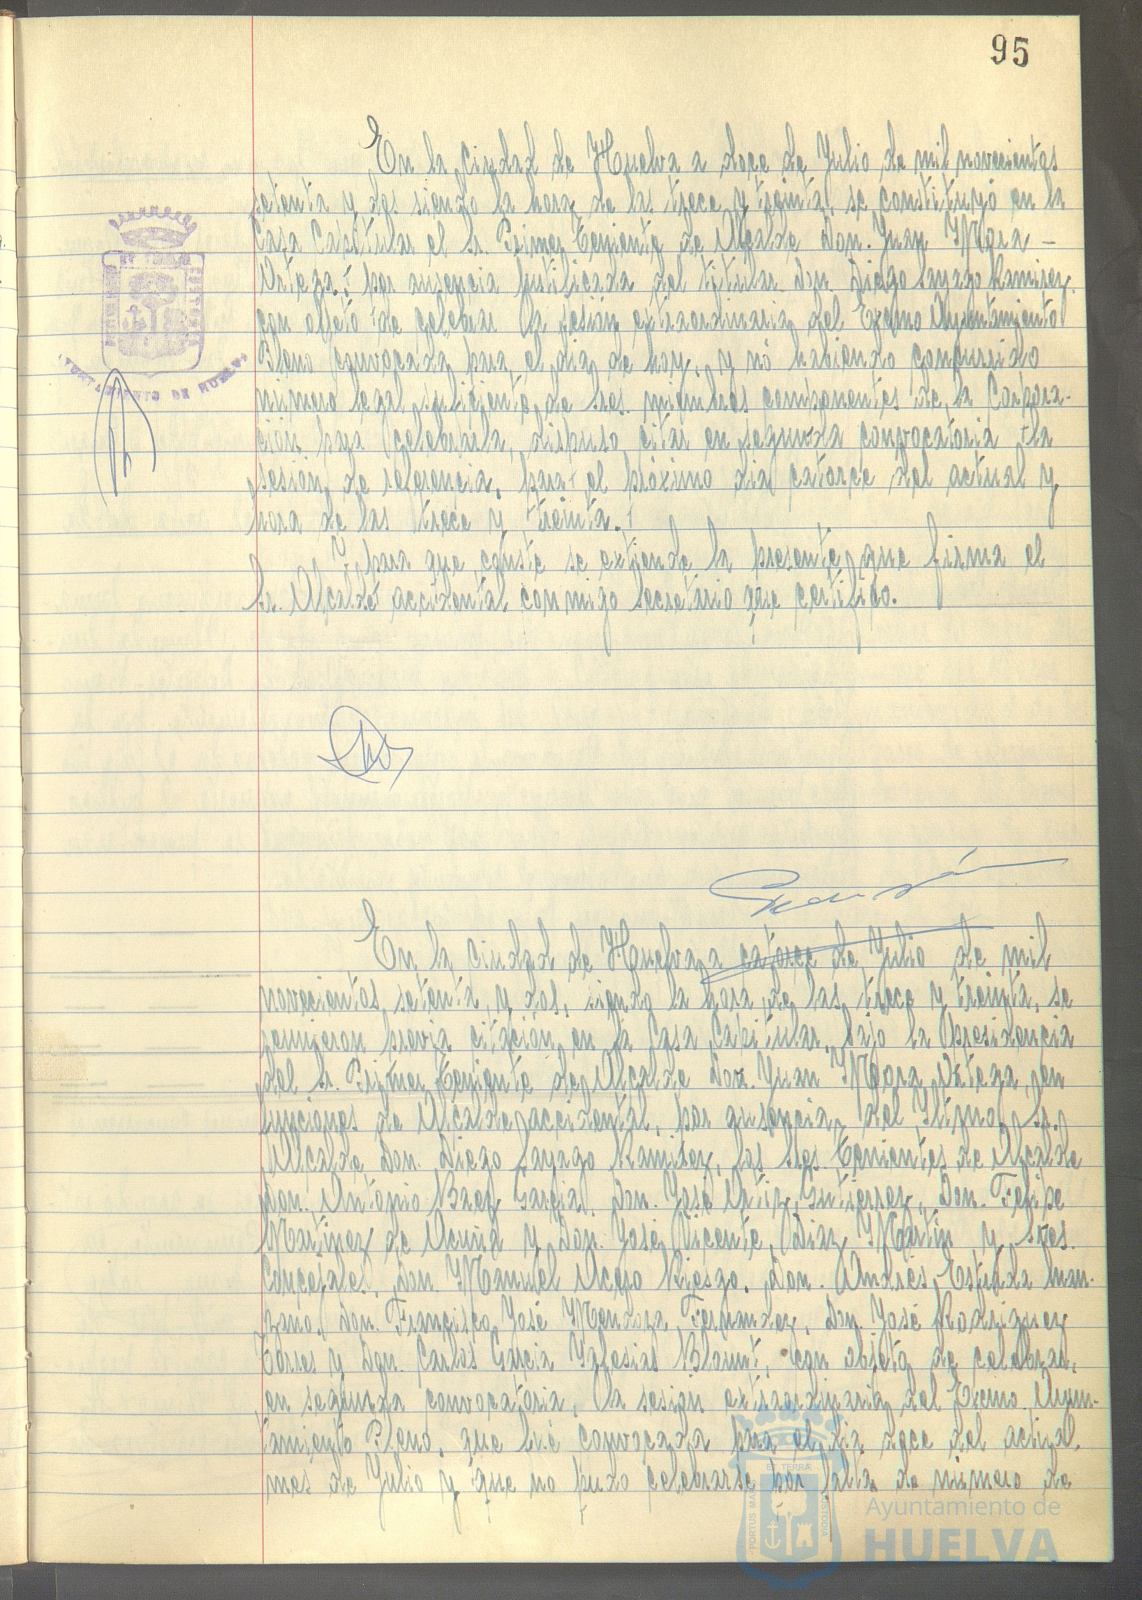 95
En la Ciudad de Huelva a doce de Julio de mil novecientos
setenta y dos siendo la hora de las trece y treinta, se constituyó en la
Casa Capitular el Sr. Primer Teniente de Alcalde Don Juan Mora
Ortega, por ausencia justificada del titular Don Diego Sayago Ramirez
con objeto de celebrar la sesión extraordinaria del Excmo Ayuntamiento
Pleno convocada para el día de hoy, y nó habiendo concurrido
número legal suficiente de Sres. miembros componentes de la Corpora-
ción para celebrarla, dispuso citar en segunda convocatoria la
sesión de referencia, para el próximo dia catorce del actual y
hora de las trece y treinta.
Y para que conste se extiende la presente que firma el
Sr. Alcalde accidental conmigo Secretario que certifico.
En la Ciudad de Huelva a catorce de Julio de mil
novecientos setenta y dos, siendo la hora de las trece y treinta, se
reunieron previa citación en la Casa Capitular, bajo la Presidencia
del Sr. Primer Teniente de Alcalde Don Juan Mora Ortega en
funciones de Alcalde accidental, por ausencia del Iltmo Sr.
Alcalde Don Diego Sayago Ramirez, los Sres Tenientes de Alcalde
Don Antonio Baez Garcia, Don José Ortiz Gutierrez, Don Felipe
Martinez de Acuña y Don José Vicente Diaz Martin y Sres
Concejales, Don Manuel Acejo Riesgo, Don Andrés Estrada Man-
zano, Don Francisco José Mendoza Fernandez, Don José Rodriguez
Torres y Don Carlos Garcia Yglesias Blount, con objeto de celebrar,
en segunda convocatoria, la sesión extraordinaria del Excmo Ayun-
tamiento Pleno, que fué convocada para el dia doce del actual
mes de Julio y que no pudo celebrarse por falta de número de
AYUNTAMIENTO DE HUELVA
Ayuntamiento de
HUELVA